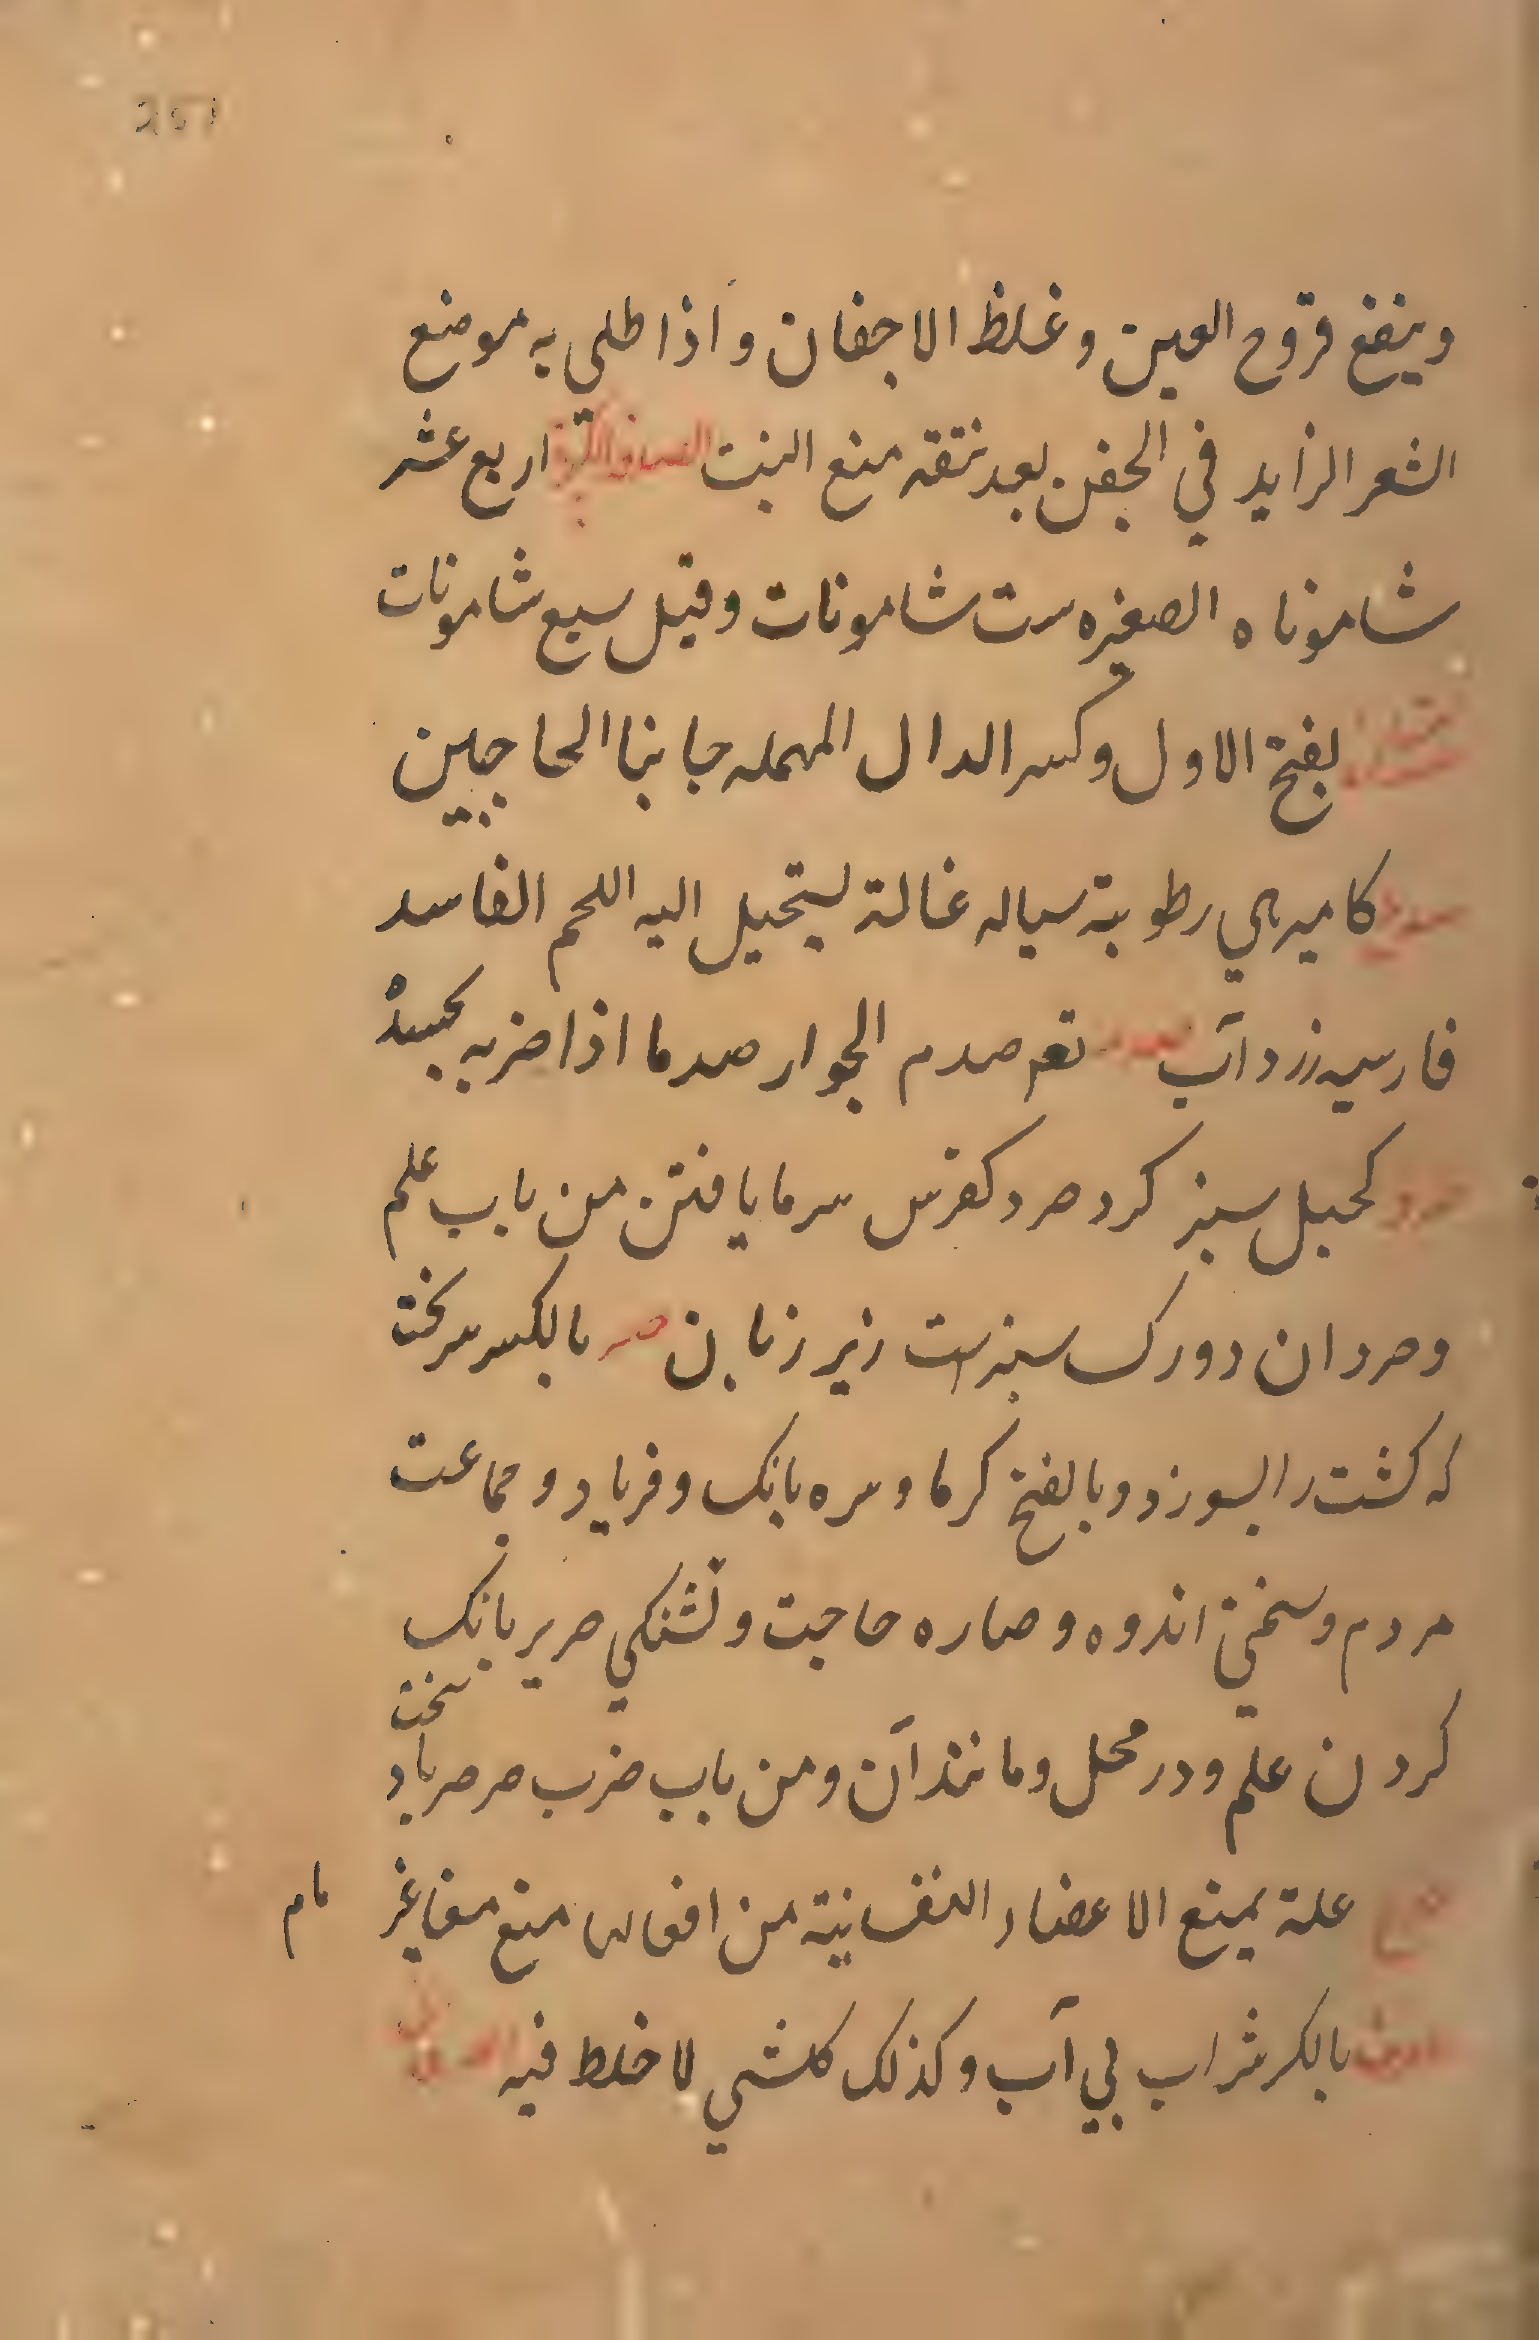 وينفع قروح العين وغلظ الاجفان واذا طلي به موضع
الشعر الزايد في الجفن بعد نتقه منع النبت اربع عشر
شاموناه الصغيره ست شامونات وقيل سبع شامونات
بفتح الاول وكسر الدال المهمله جانبا الحاجبين
كامير هي رطوبة سياله غالة يستحيل اليه اللحم الفاسد
فارسيه زرد آب صدم الجوار صدما اذا ضربه بجسده
كحبل سبز كرد صرد كفرس سرما يافتن من باب علم
وصردان دورك سبزست زير زبان صر بالكسر سرسخت
كه كشت را بسوزد وبالفتح كرما وصره بانك وفرياد وجماعت
مردم وسختي اندوه وصاره حاجت وتشنكي صرير بانك
كردن علم ودر محل ومانند آن ومن باب ضرب صرصر باد سخت
علة يمنع الاعضاء النفسانية من افعالها منع غير تام
بالكسر شراب بي آب وكذلك كلشي لا خلط فيه